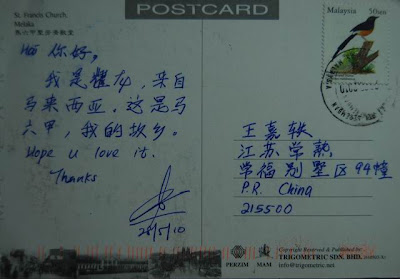 POSTCARD
St. Francis Church,
Melaka
Malaysia
50sen
你好,
我是耀龙,来自
马来西亚。这是马
六甲,我的故乡。
Hope u love it.
Thanks
28/5/10
王嘉轶
江苏常熟
常福别墅区94幢
P.R. China
215500
PERZIM
MAM
Copyright Reserved & Published by:
TRIGOMETRIC SDN. BHD.
info@trigometric.net